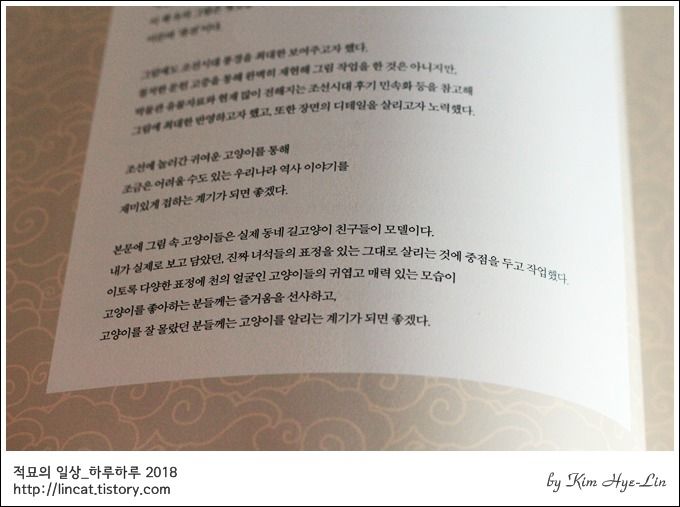 그럼에도 조선시대 풍경을 최대한 보여주고자 했다.
철저한 문헌 고증을 통해 완벽히 재현해 그림 작업을 한 것은 아니지만,
박물관 유물자료와 현재 많이 전해지는 조선시대 후기 민속화 등을 참고해
그림에 최대한 반영하고자 했고, 또한 장면의 디테일을 살리고자 노력했다.
조선에 놀러간 귀여운 고양이를 통해
조금은 어려울 수도 있는 우리나라 역사 이야기를
재미있게 접하는 계기가 되면 좋겠다.
본문에 그림 속 고양이들은 실제 동네 길고양이 친구들이 모델이다.
내가 실제로 보고 담았던, 진짜 녀석들의 표정을 있는 그대로 살리는 것에 중점을 두고 작업했다.
이토록 다양한 표정에 천의 얼굴인 고양이들의 귀엽고 매력 있는 모습이
고양이를 좋아하는 분들께는 즐거움을 선사하고,
고양이를 잘 몰랐던 분들께는 고양이를 알리는 계기가 되면 좋겠다.
적묘의 일상_하루하루 2018
http://lincat.tistory.com
by Kim Hye-Lin